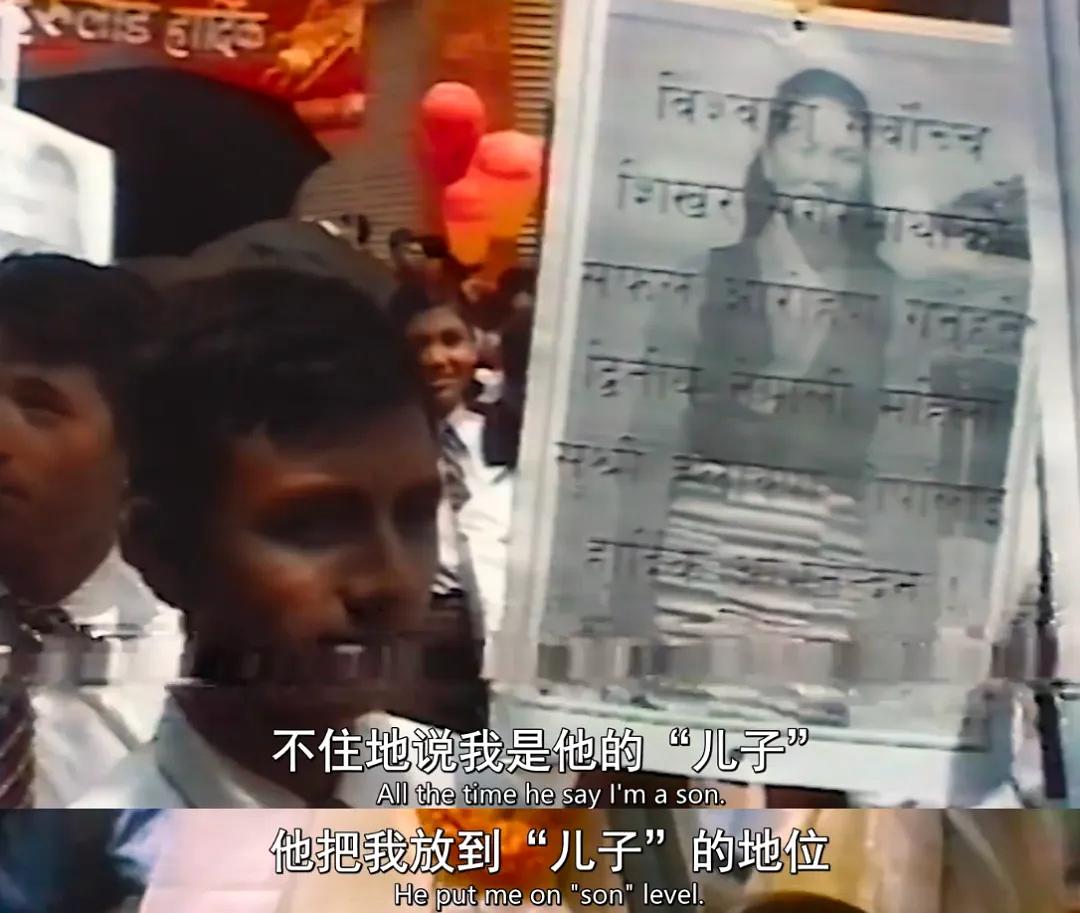 हार्दिक
विश्वको सर्वोच्च
शिखर सगरमाथाको
सफल आरोहण गर्नुहुने
द्वितीय नेपाली महिला
सुश्री
हार्दिक
不住地说我是他的“儿子”
All the time he say I'm a son.
他把我放到“儿子”的地位
He put me on "son" level.